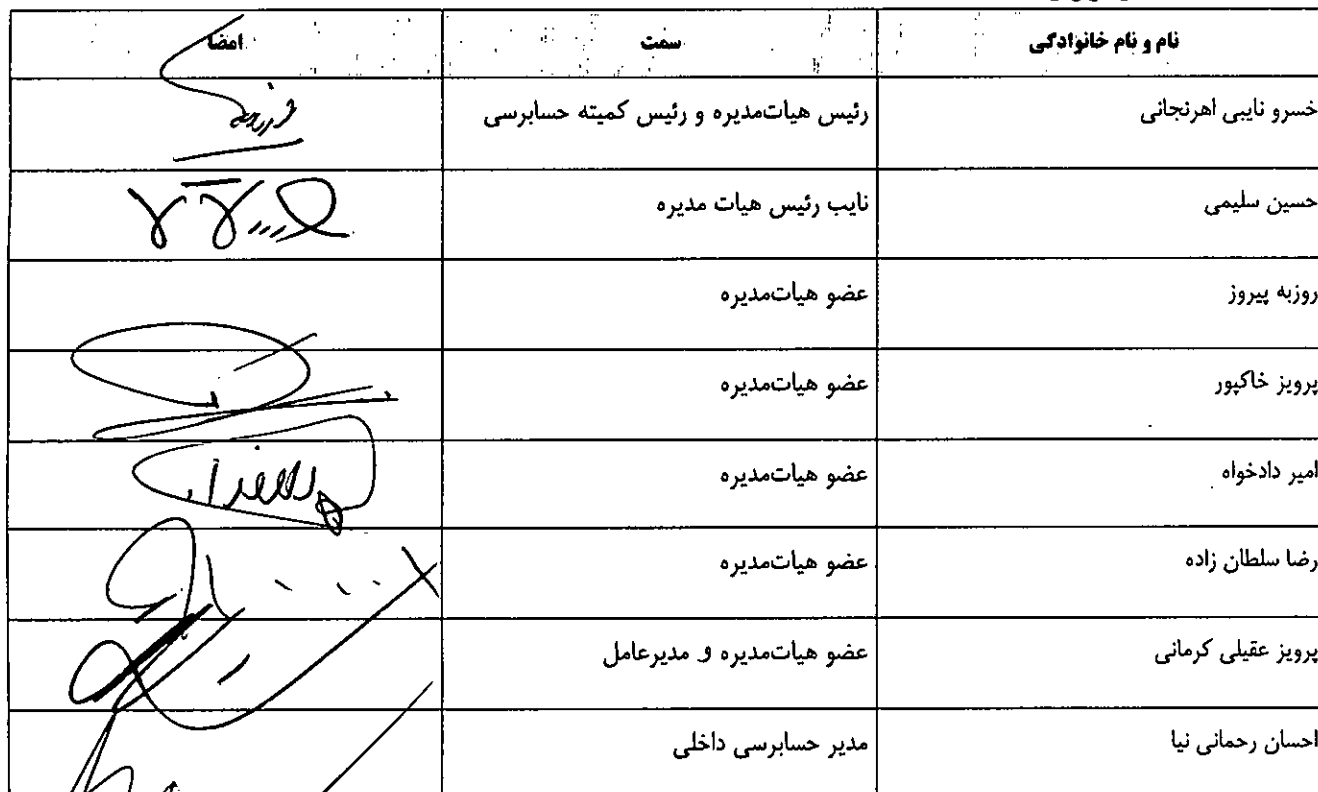 نام و نام خانوادگی سمت امضا
خسرو نایبی اهرنجانی رئیس هیات‌مدیره و رئیس کمیته حسابرسی
حسین سلیمی نایب رئیس هیات مدیره
روزبه پیروز عضو هیات‌مدیره
پرویز خاکپور عضو هیات‌مدیره
امیر دادخواه عضو هیات‌مدیره
رضا سلطان زاده عضو هیات‌مدیره
پرویز عقیلی کرمانی عضو هیات‌مدیره و مدیرعامل
احسان رحمانی نیا مدیر حسابرسی داخلی